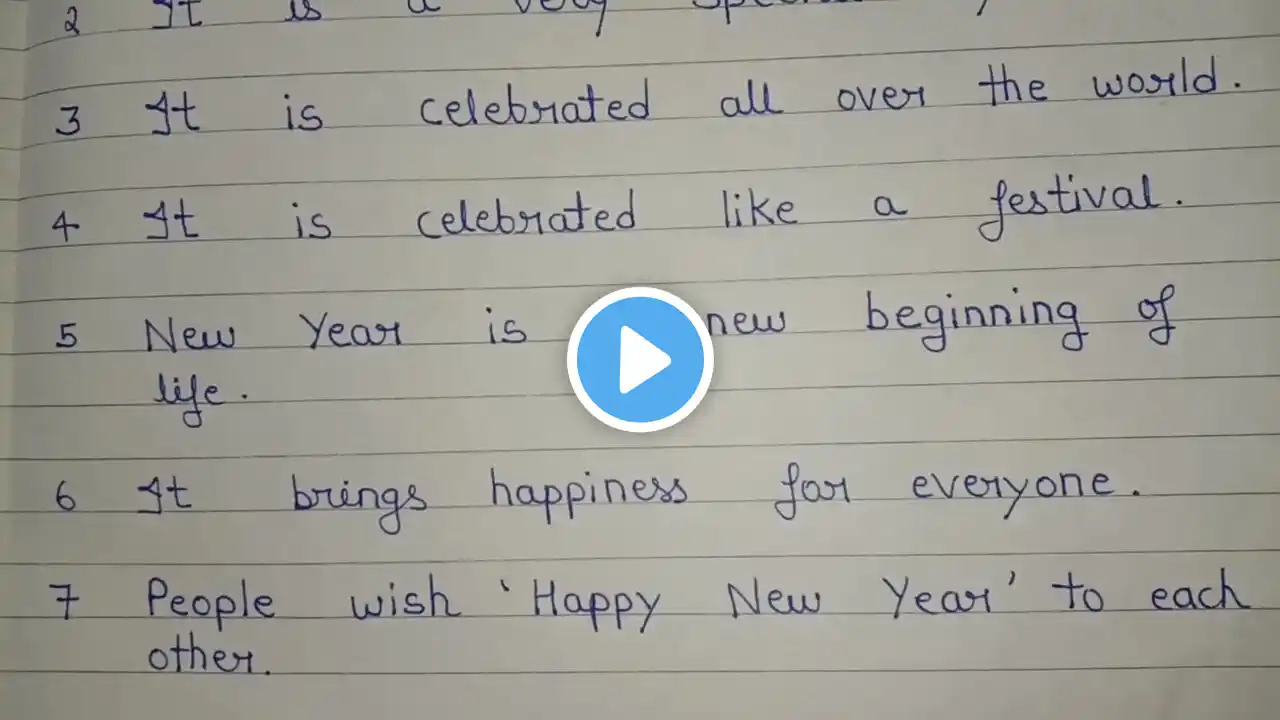 2 It is a very
3 It is celebrated all over the world.
4 It is celebrated like a festival.
5 New Year is new beginning of
life.
6 It brings happiness for everyone.
7 People wish 'Happy New Year' to each
other.